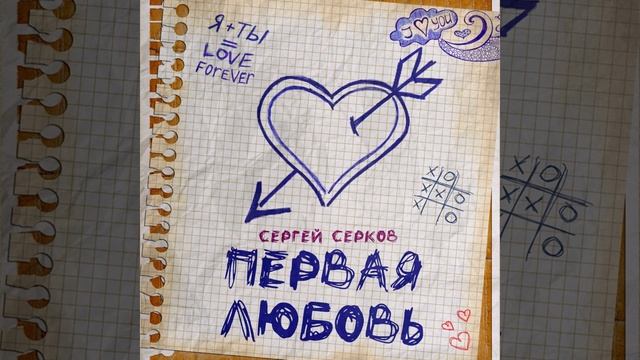 Я + ТЫ
=
LOVE
FOREVER
I ♥ YOU
СЕРГЕЙ СЕРКОВ
ПЕРВАЯ
ЛЮБОВЬ